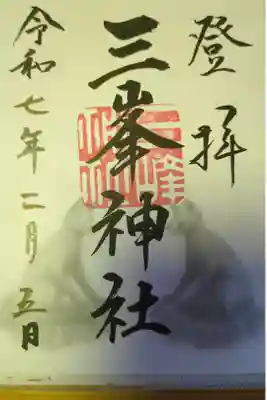 登拝
三峯神社
令和七年二月五日